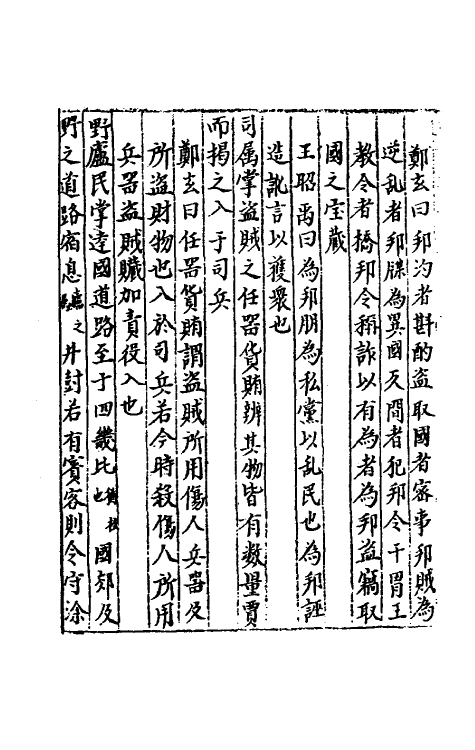 鄭玄曰邦汋者斟酌盗取國者宻事邦賊為
逆乱者邦牒為異國反間者犯邦令干冒王
教令者撟邦令稱詐以有為者為邦盗竊取
國之宝蔵
王昭禹曰為邦朋為私黨以乱民也為邦誣
造訛言以獲衆也
司属掌盗賊之任器貨賄辨其物皆有数量賈
而揭之入于司兵
鄭玄曰任器貨賄謂盗賊所用傷人兵器及
所盗財物也入於司兵若今時殺傷人所用
兵器盗賊贜加責役入也
野廬民掌達國道路至于四畿比也國郊及
野之道路宿息之井封若有賓客則令守涂